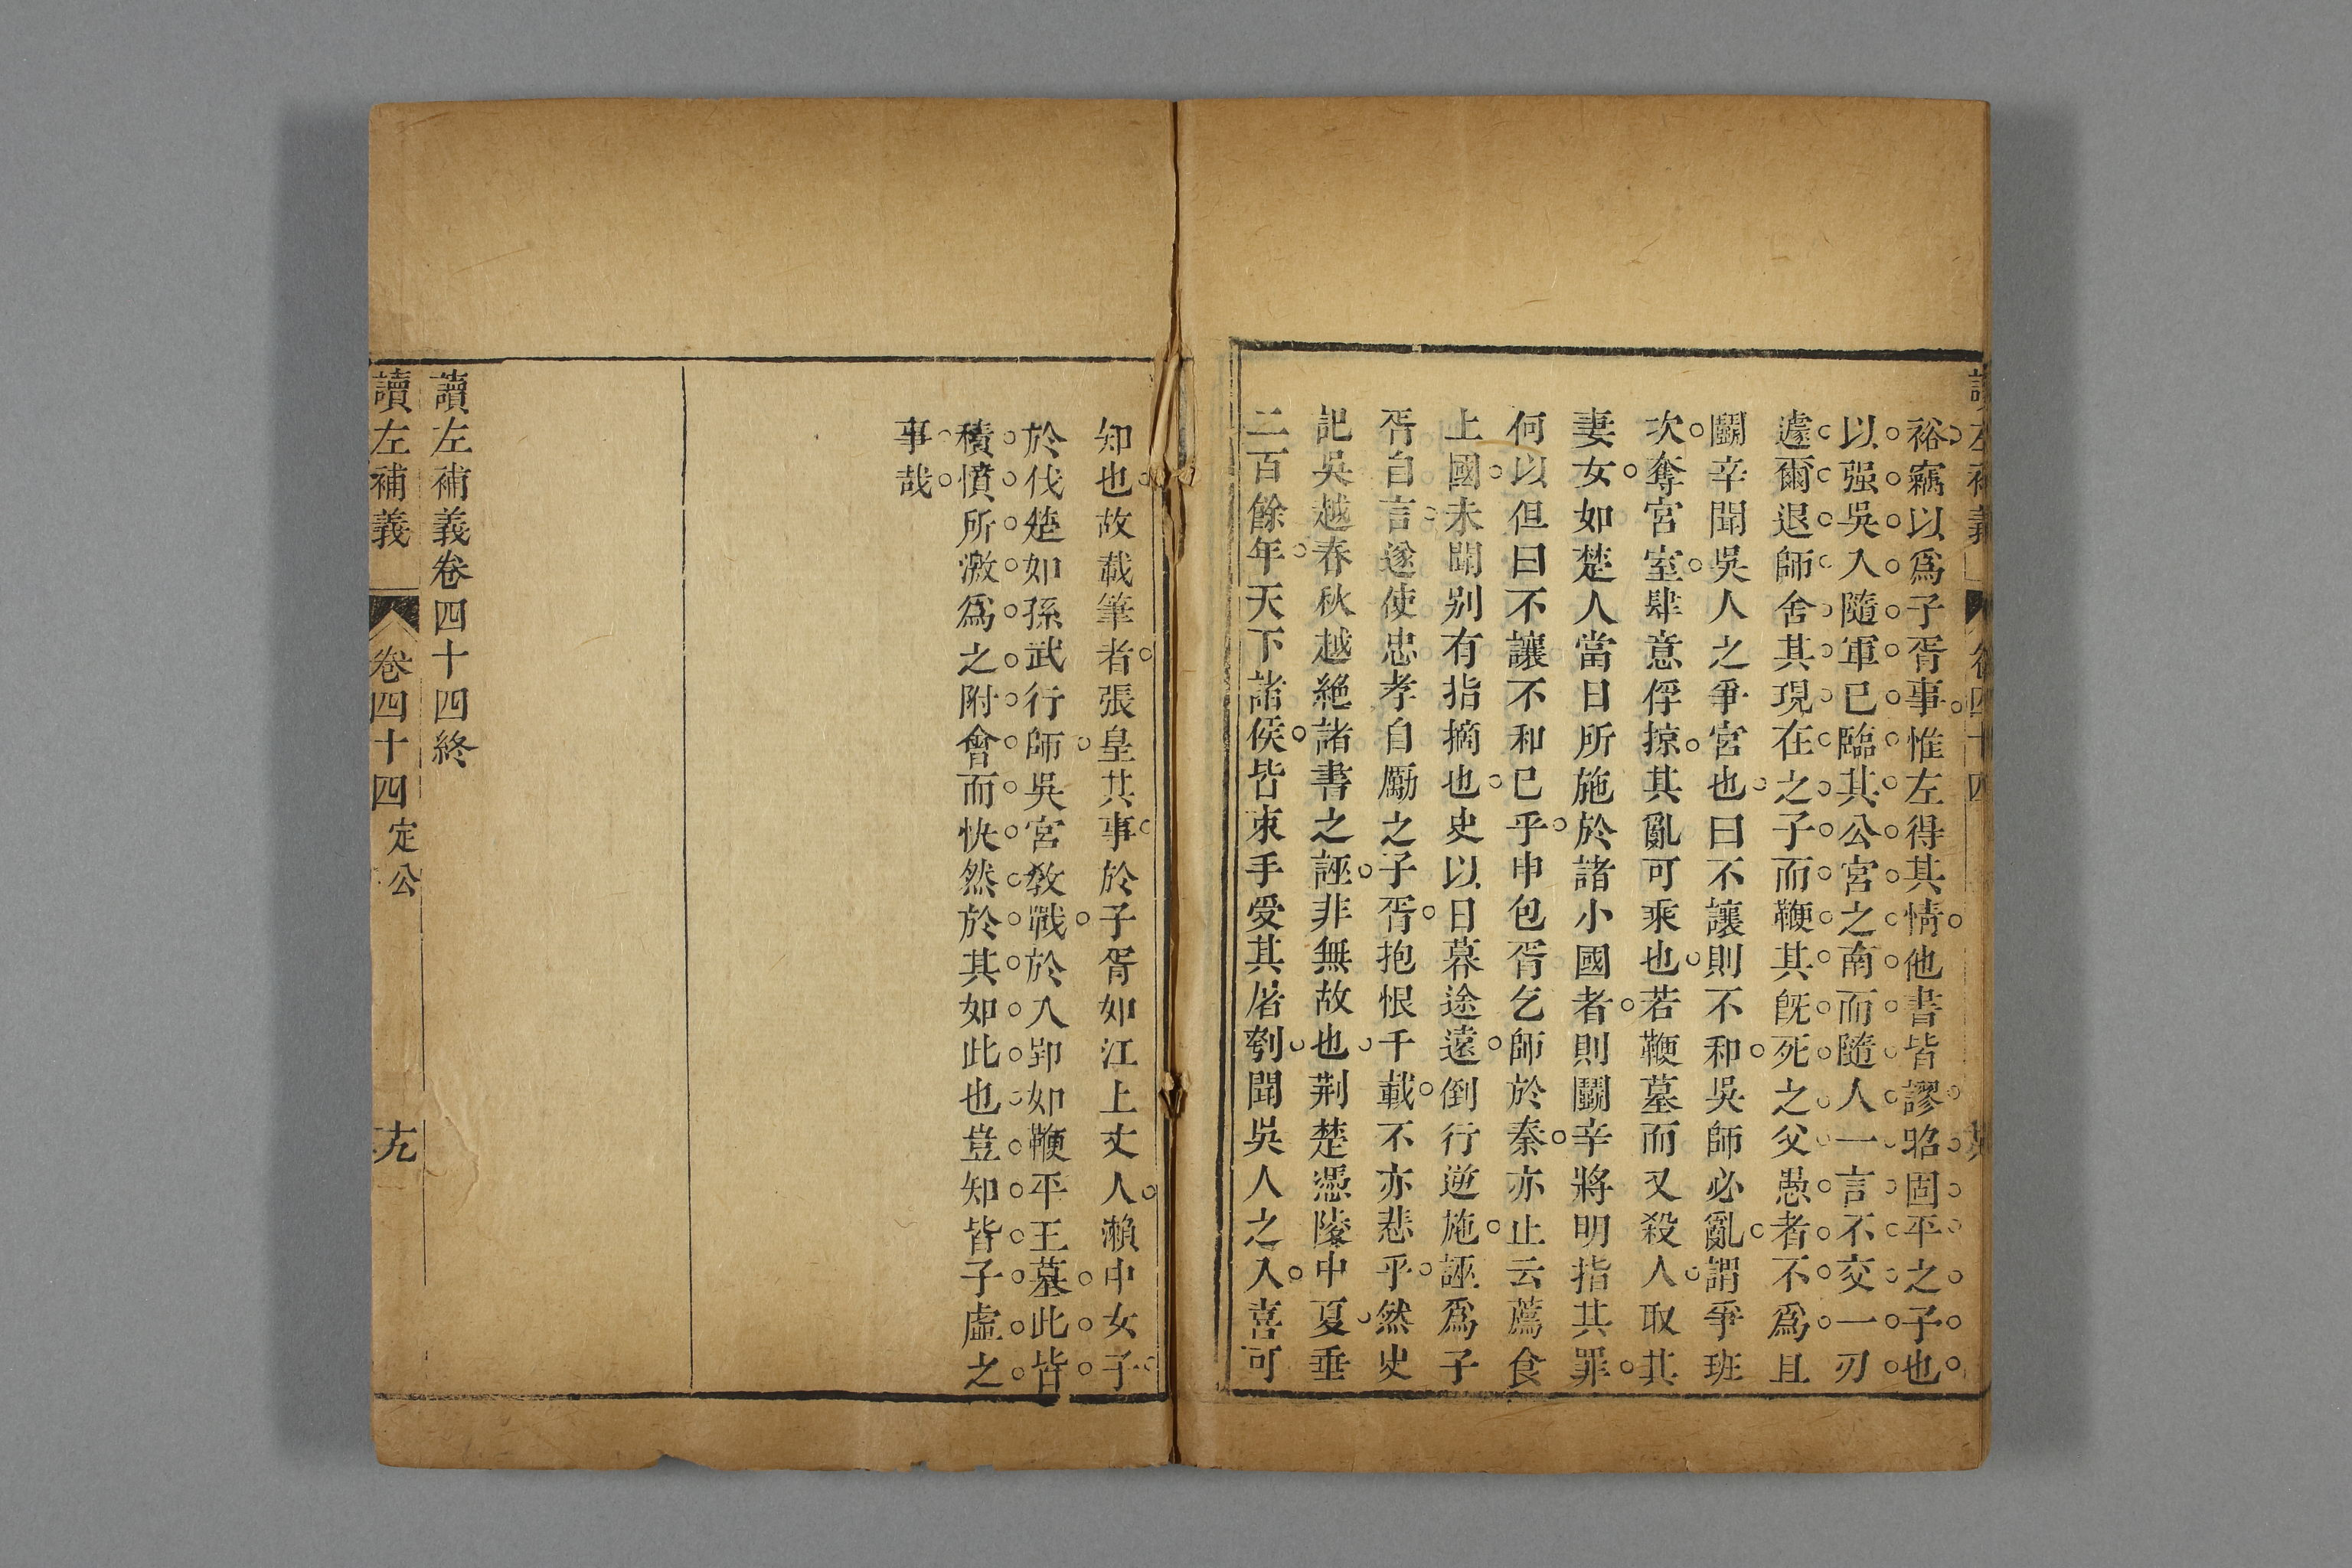 裕竊以爲子胥事惟左得其情他書皆謬昭固平之子也
以强吳入隨軍已臨其公宮之南而隨人一言不交一刃
遽爾退師舍其現在之子而鞭其旣死之父愚者不爲且
鬭辛聞吳人之爭宮也曰不讓則不和吳師必亂謂爭班
次奪宮室肆意俘掠其亂可乘也若鞭墓而又殺人取其
妻女如楚人當日所施於諸小國者則鬭辛將明指其罪
何以但曰不讓不和已乎申包胥乞師於秦亦止云薦食
上國未聞别有指摘也史以日暮途遠倒行逆施誣爲子
胥自言遂使忠孝自勵之子胥抱恨千載不亦悲乎然史
記吳越春秋越絶諸書之誣非無故也荆楚憑陵中夏垂
二百餘年天下諸侯皆束手受其屠刳聞吳人之入喜可
知也故載筆者張皇其事於子胥如江上丈人瀨中女子
於伐楚如孫武行師吳宮敎戰於入郢如鞭平王墓此皆
積憤所激爲之附會而快然於其如此也豈知皆子虛之
事哉
讀左補義卷四十四終
讀左補義 卷四十四 定公 十九